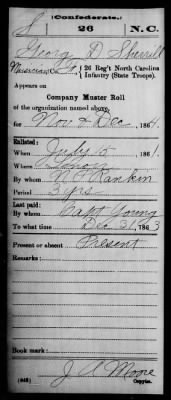 (Confederate.)
S 26 N.C.
George D Sherrill
Musician, Co. , 26 Reg't North Carolina
Infantry (State Troops).
Appears on
Company Muster Roll
of the organization named above,
for Nov & Dec , 1864.
Enlisted:
When July 15 , 1861.
Where
By whom N P Rankin
Period 3 yrs
Last paid:
By whom Capt Young
To what time Dec 31 , 1863
Present or absent Present
Remarks:
Book mark:
J A Moore
(642) Copyist.